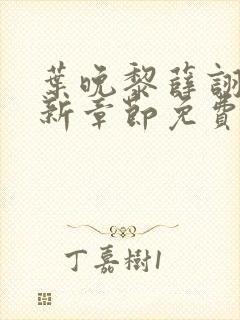 葉晚黎薛詡
新章節免費
丁嘉樹1